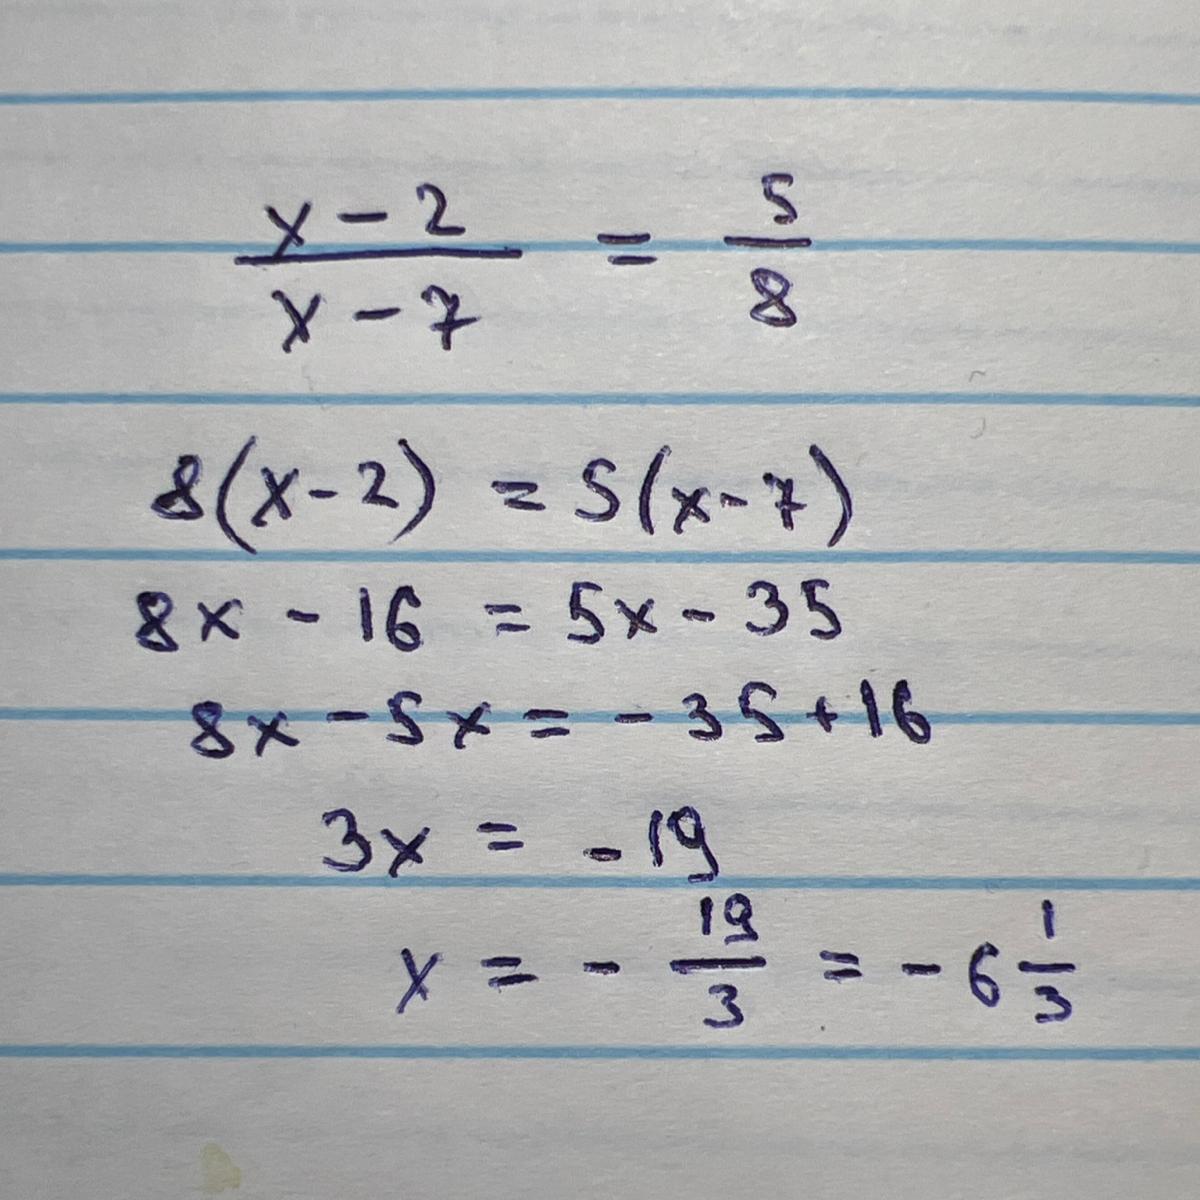 x - 2 / x - 7 = 5 / 8
8(x - 2) = 5(x - 7)
8x - 16 = 5x - 35
8x - 5x = - 35 + 16
3x = - 19
x = - 19/3 = - 6 1/3